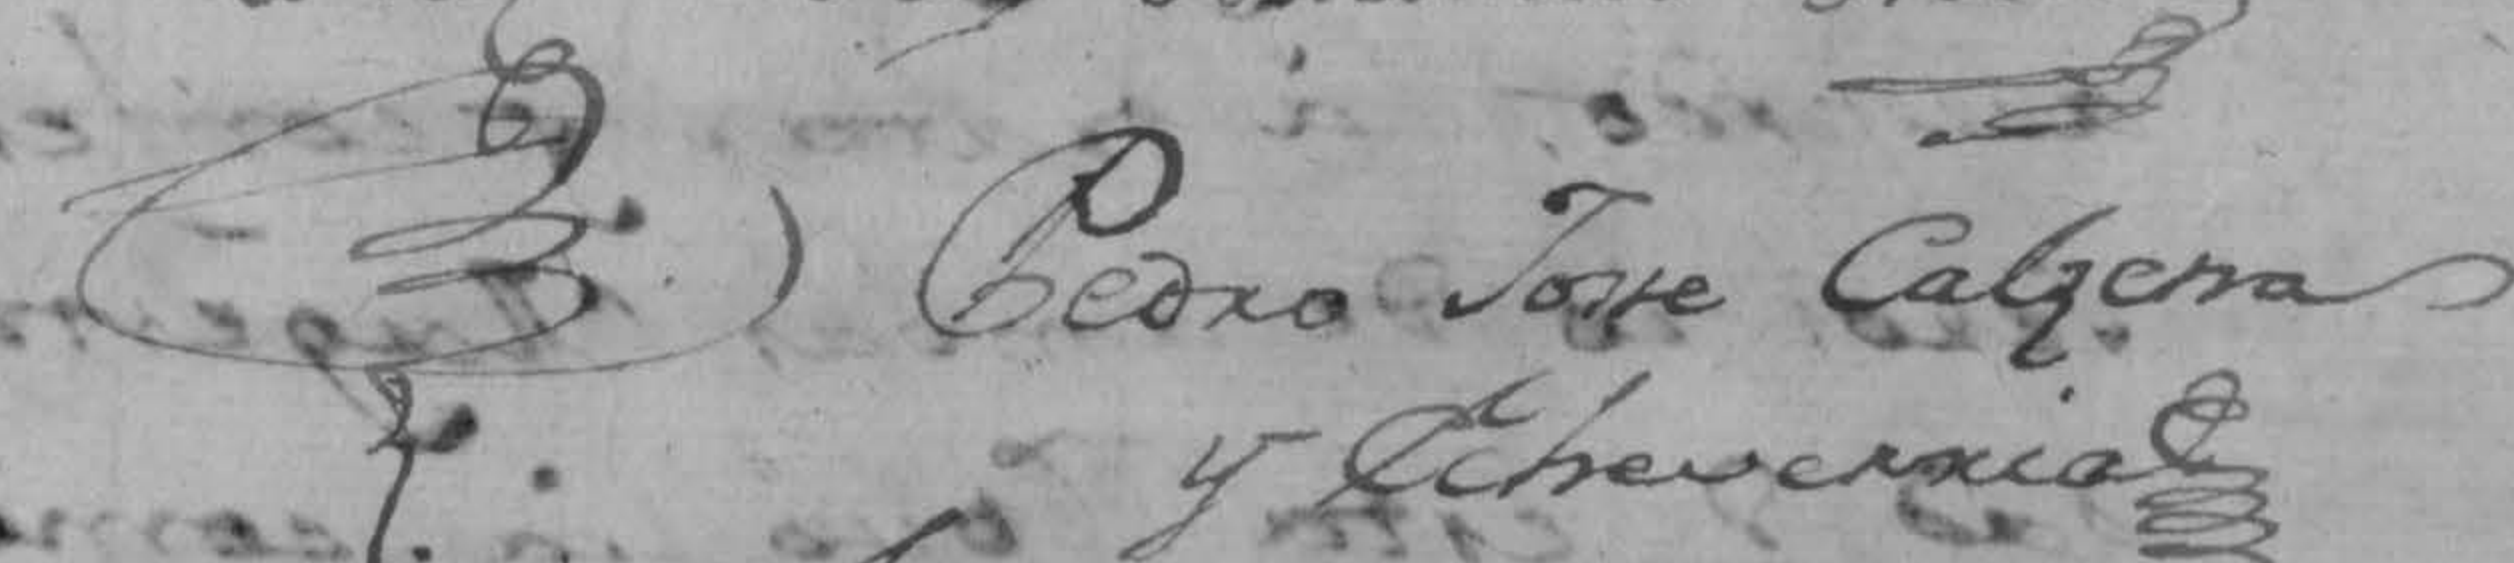 Pedro Josse Calzena
y Echeverria